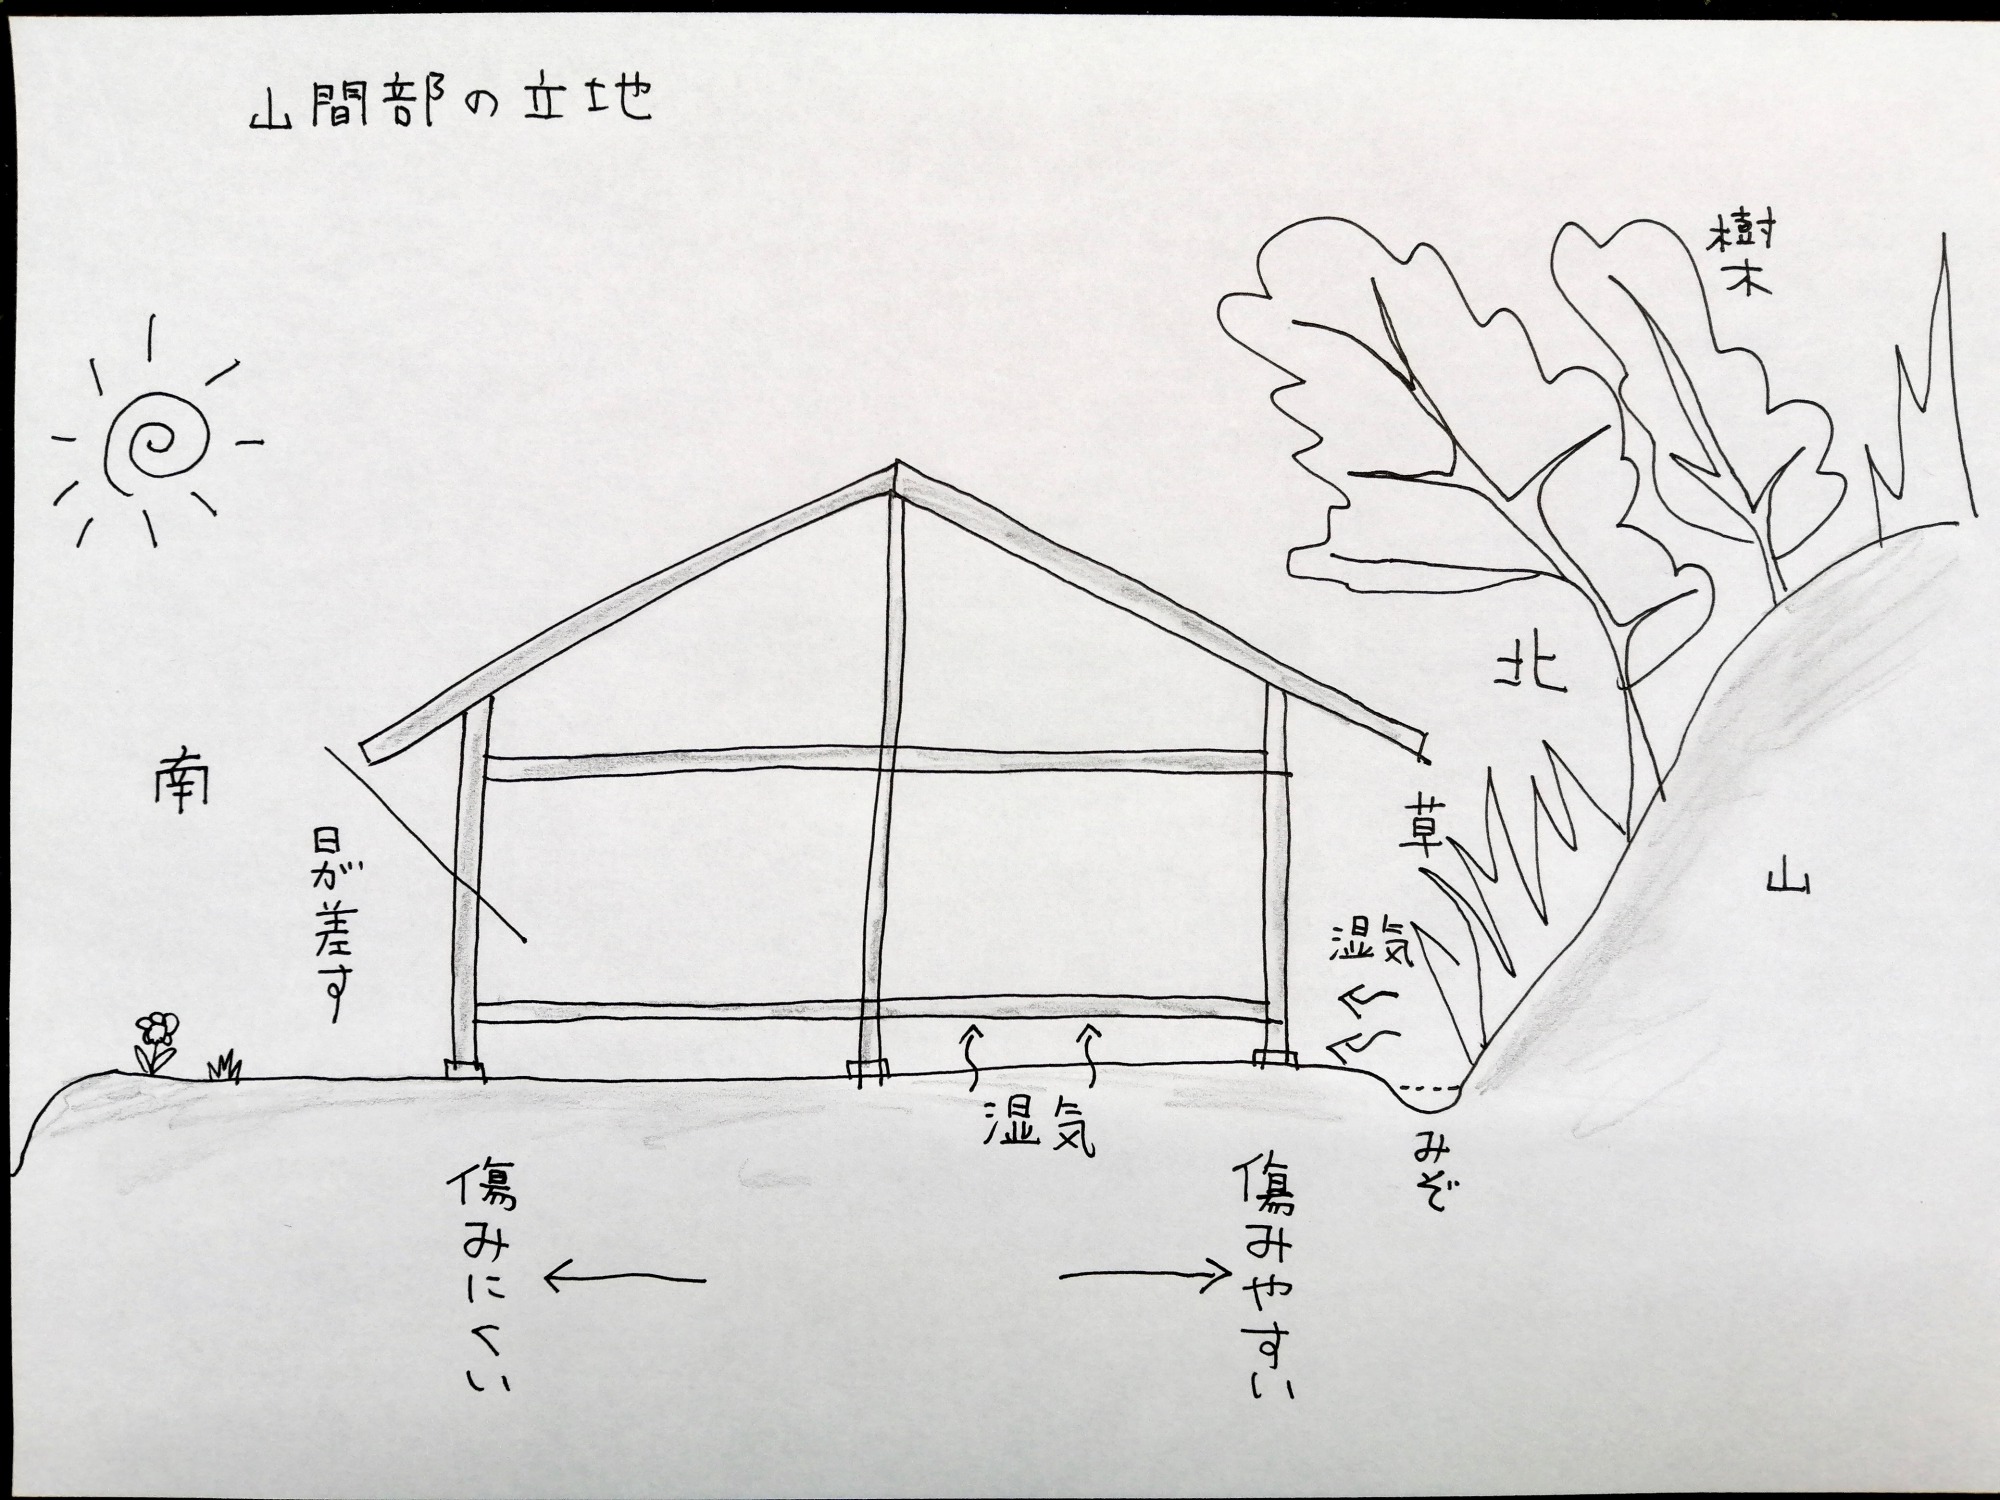 山間部の立地
樹木
北
南
日が差す
草
山
湿気
湿気
みぞ
傷みにくい
傷みやすい